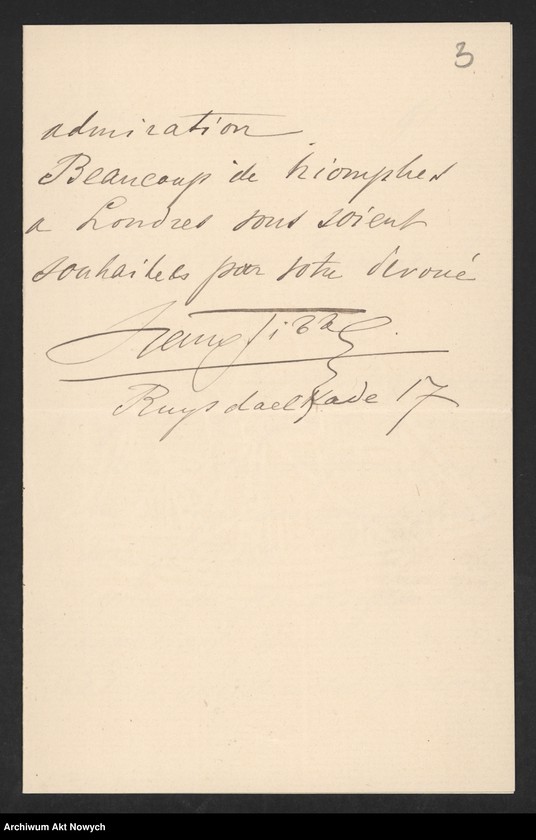 3
admiration
Beaucoup de triomphes
a Londres vous soient
souhaitées par votre dévoué
Ruysdaelkade 17
Archiwum Akt Nowych